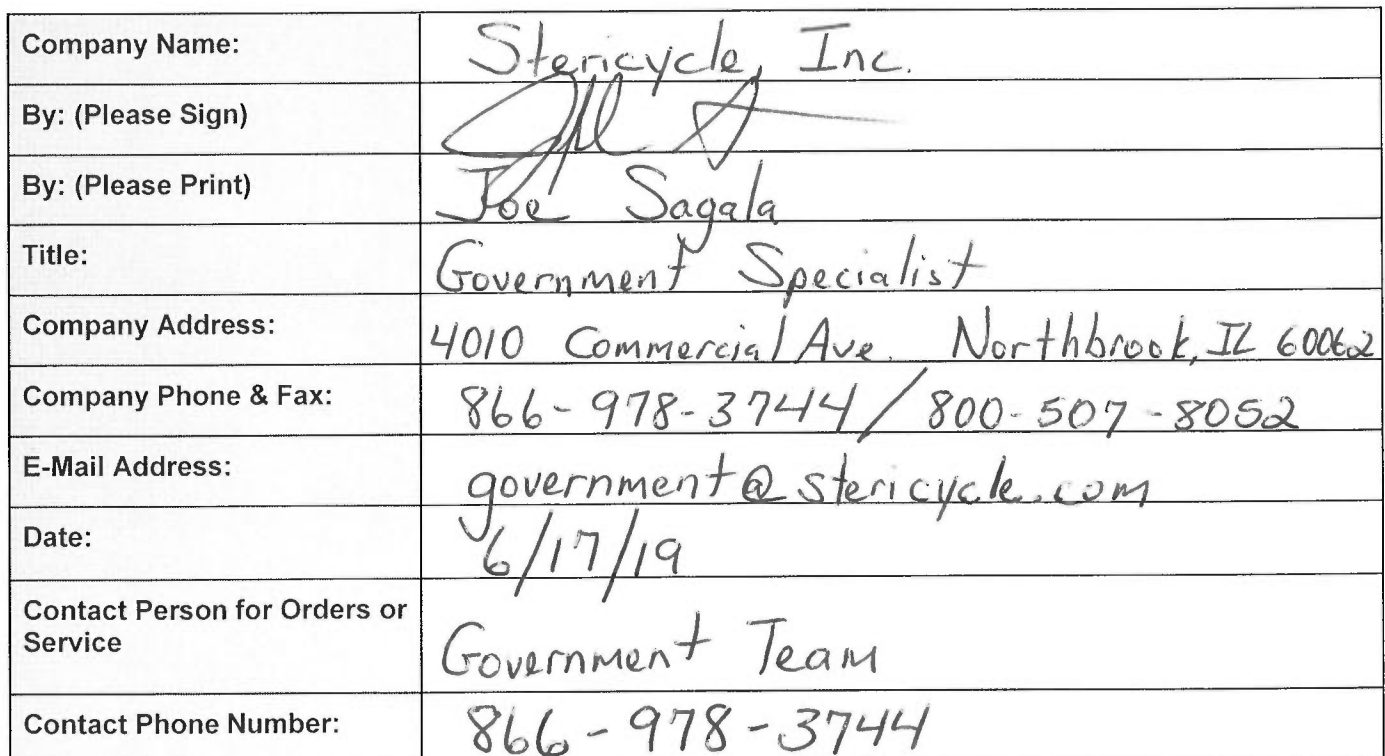 Company Name: Stericycle, Inc.
By: (Please Sign)
By: (Please Print) Joe Sagala
Title: Government Specialist
Company Address: 4010 Commercial Ave. Northbrook, IL 60062
Company Phone & Fax: 866-978-3744 / 800-507-8052
E-Mail Address: government@stericycle.com
Date: 6/17/19
Contact Person for Orders or
Service Government Team
Contact Phone Number: 866-978-3744